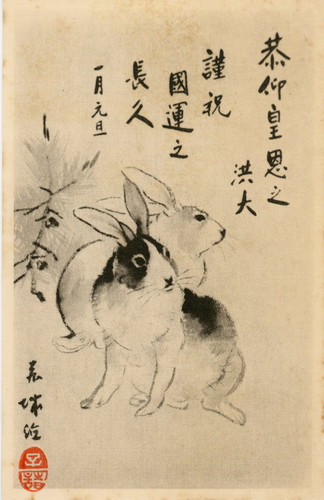 恭仰皇恩之
洪大
謹祝
國運之
長久
一月元旦